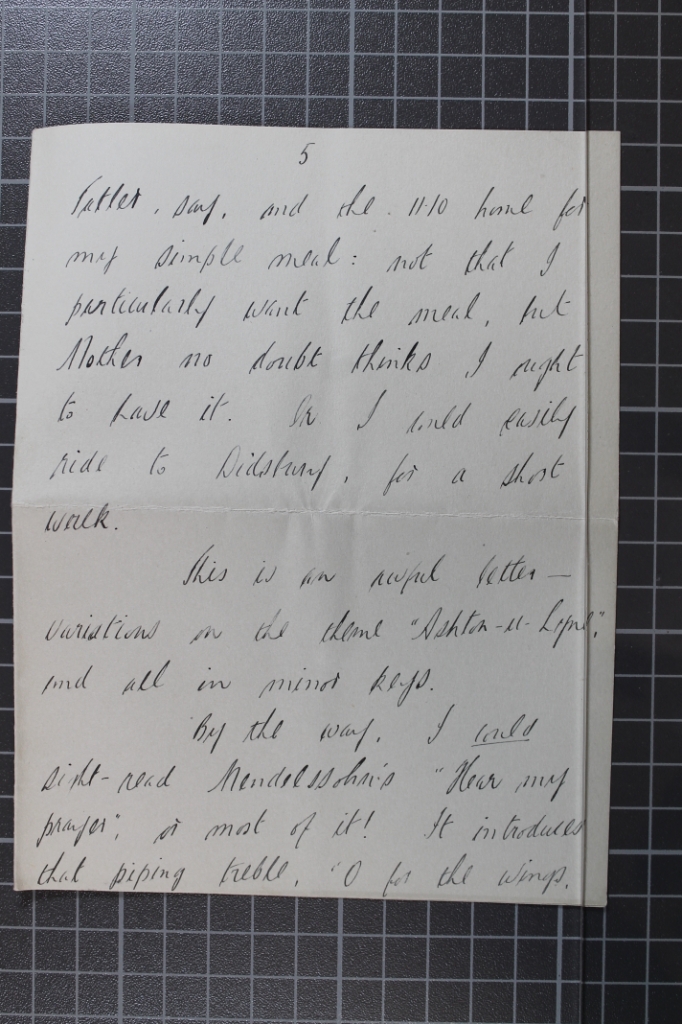 5
Father, say, and the 11.10 home for
my simple meal: not that I
particularly want the meal, but
Mother no doubt thinks I ought
to have it. Or I could easily
ride to Didsbury, for a short
walk.
This is an awful letter —
variations on the theme "Ashton-u-Lyne",
and all in minor keys.
By the way, I could
sight-read Mendelssohn's "Hear my
prayer", or most of it! It introduces
that piping treble, "O for the wings,